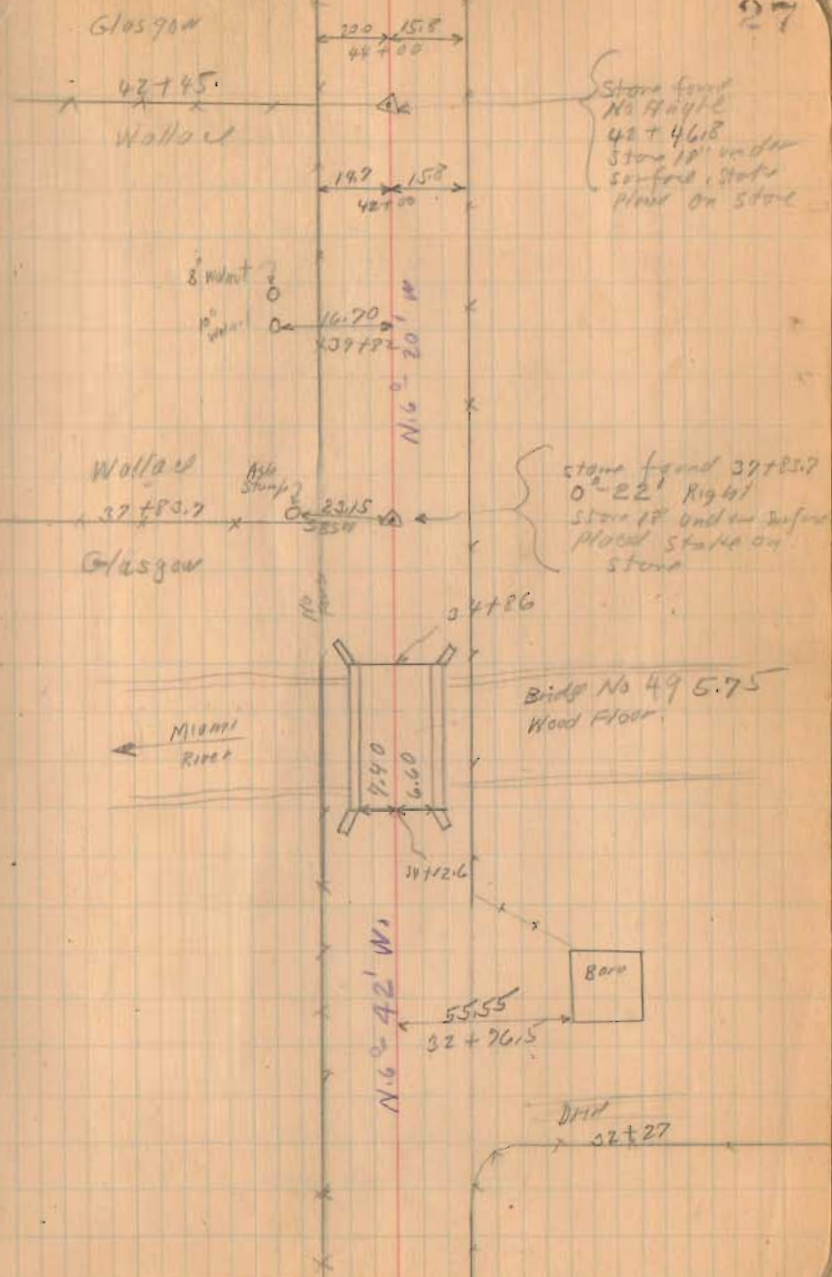 27
Glasgow
20.0 15.8
44+00
42+45.
Wallace
Stone found
No Angle
42+46.8
Stone 18" under
surface. Stake
placed on stone
19.7 15.8
42+00
8" walnut
10" walnut
16.70
39+82
N.6°-20' W
Wallace
37+83.7
Ash
Stump
23.15
Glasgow
stone found 37+83.7
0°-22' Right
Stone 18" under surface
Placed stake on
stone
No
34+86
Bridge No 49 5.75
Wood Floor.
Miami
River
7.40
6.60
34+12.6
N.6°-42' W.
Barn
55.55
32+96.5
32+27